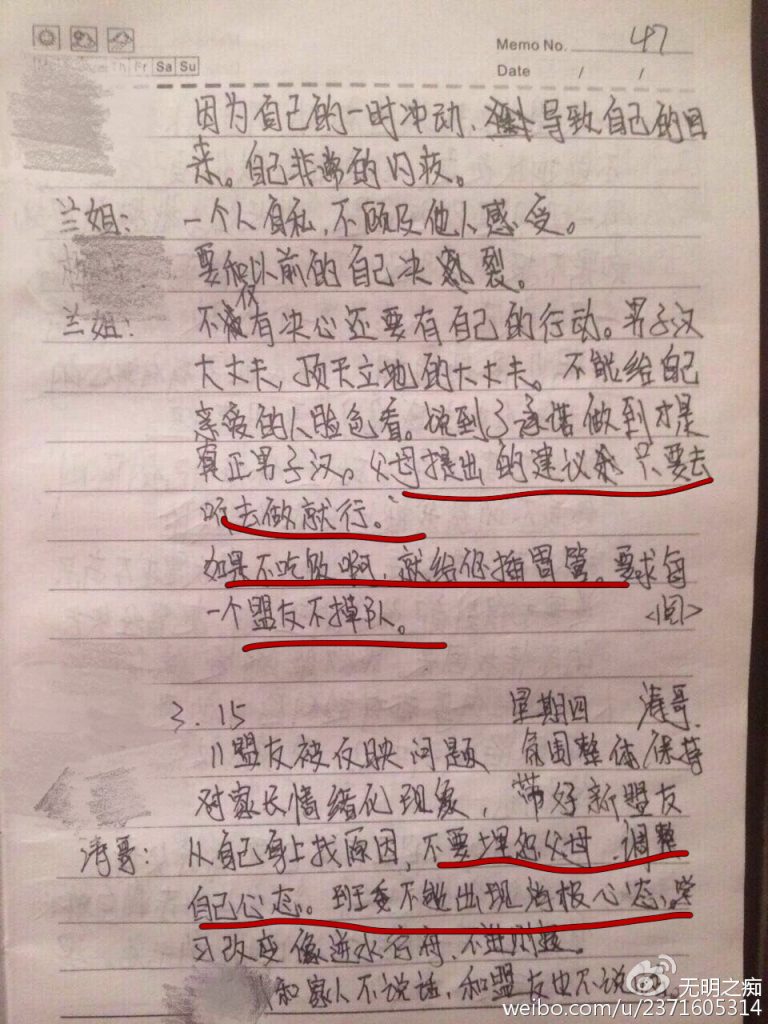 Memo No. 47
Fr Sa Su
Date / /
因为自己的一时冲动、导致自己的目
来。自己非常的内疚。
兰姐：一个人自私，不顾及他人感受。
要和以前的自己决裂。
兰姐：不仅有决心还要有自己的行动。男子汉
大丈夫，顶天立地的大丈夫。不能给自己
亲爱的人脸色看。说到了承诺做到才是
真正男子汉。父母提出的建议 只要去
听去做就行。
如果不吃饭啊，就给你插胃管。要求每
一个盟友不掉队。
3.15 星期四 涛哥
11盟友被反映问题 氛围整体保持
对家长情绪化现象，带好新盟友
涛哥：从自己身上找原因，不要埋怨父母.调整
自己心态。班委不能出现消极心态。学
习改变像逆水行舟，不进则退。
和家人不说话，和盟友也不说
无明之痴
weibo.com/u/2371605314